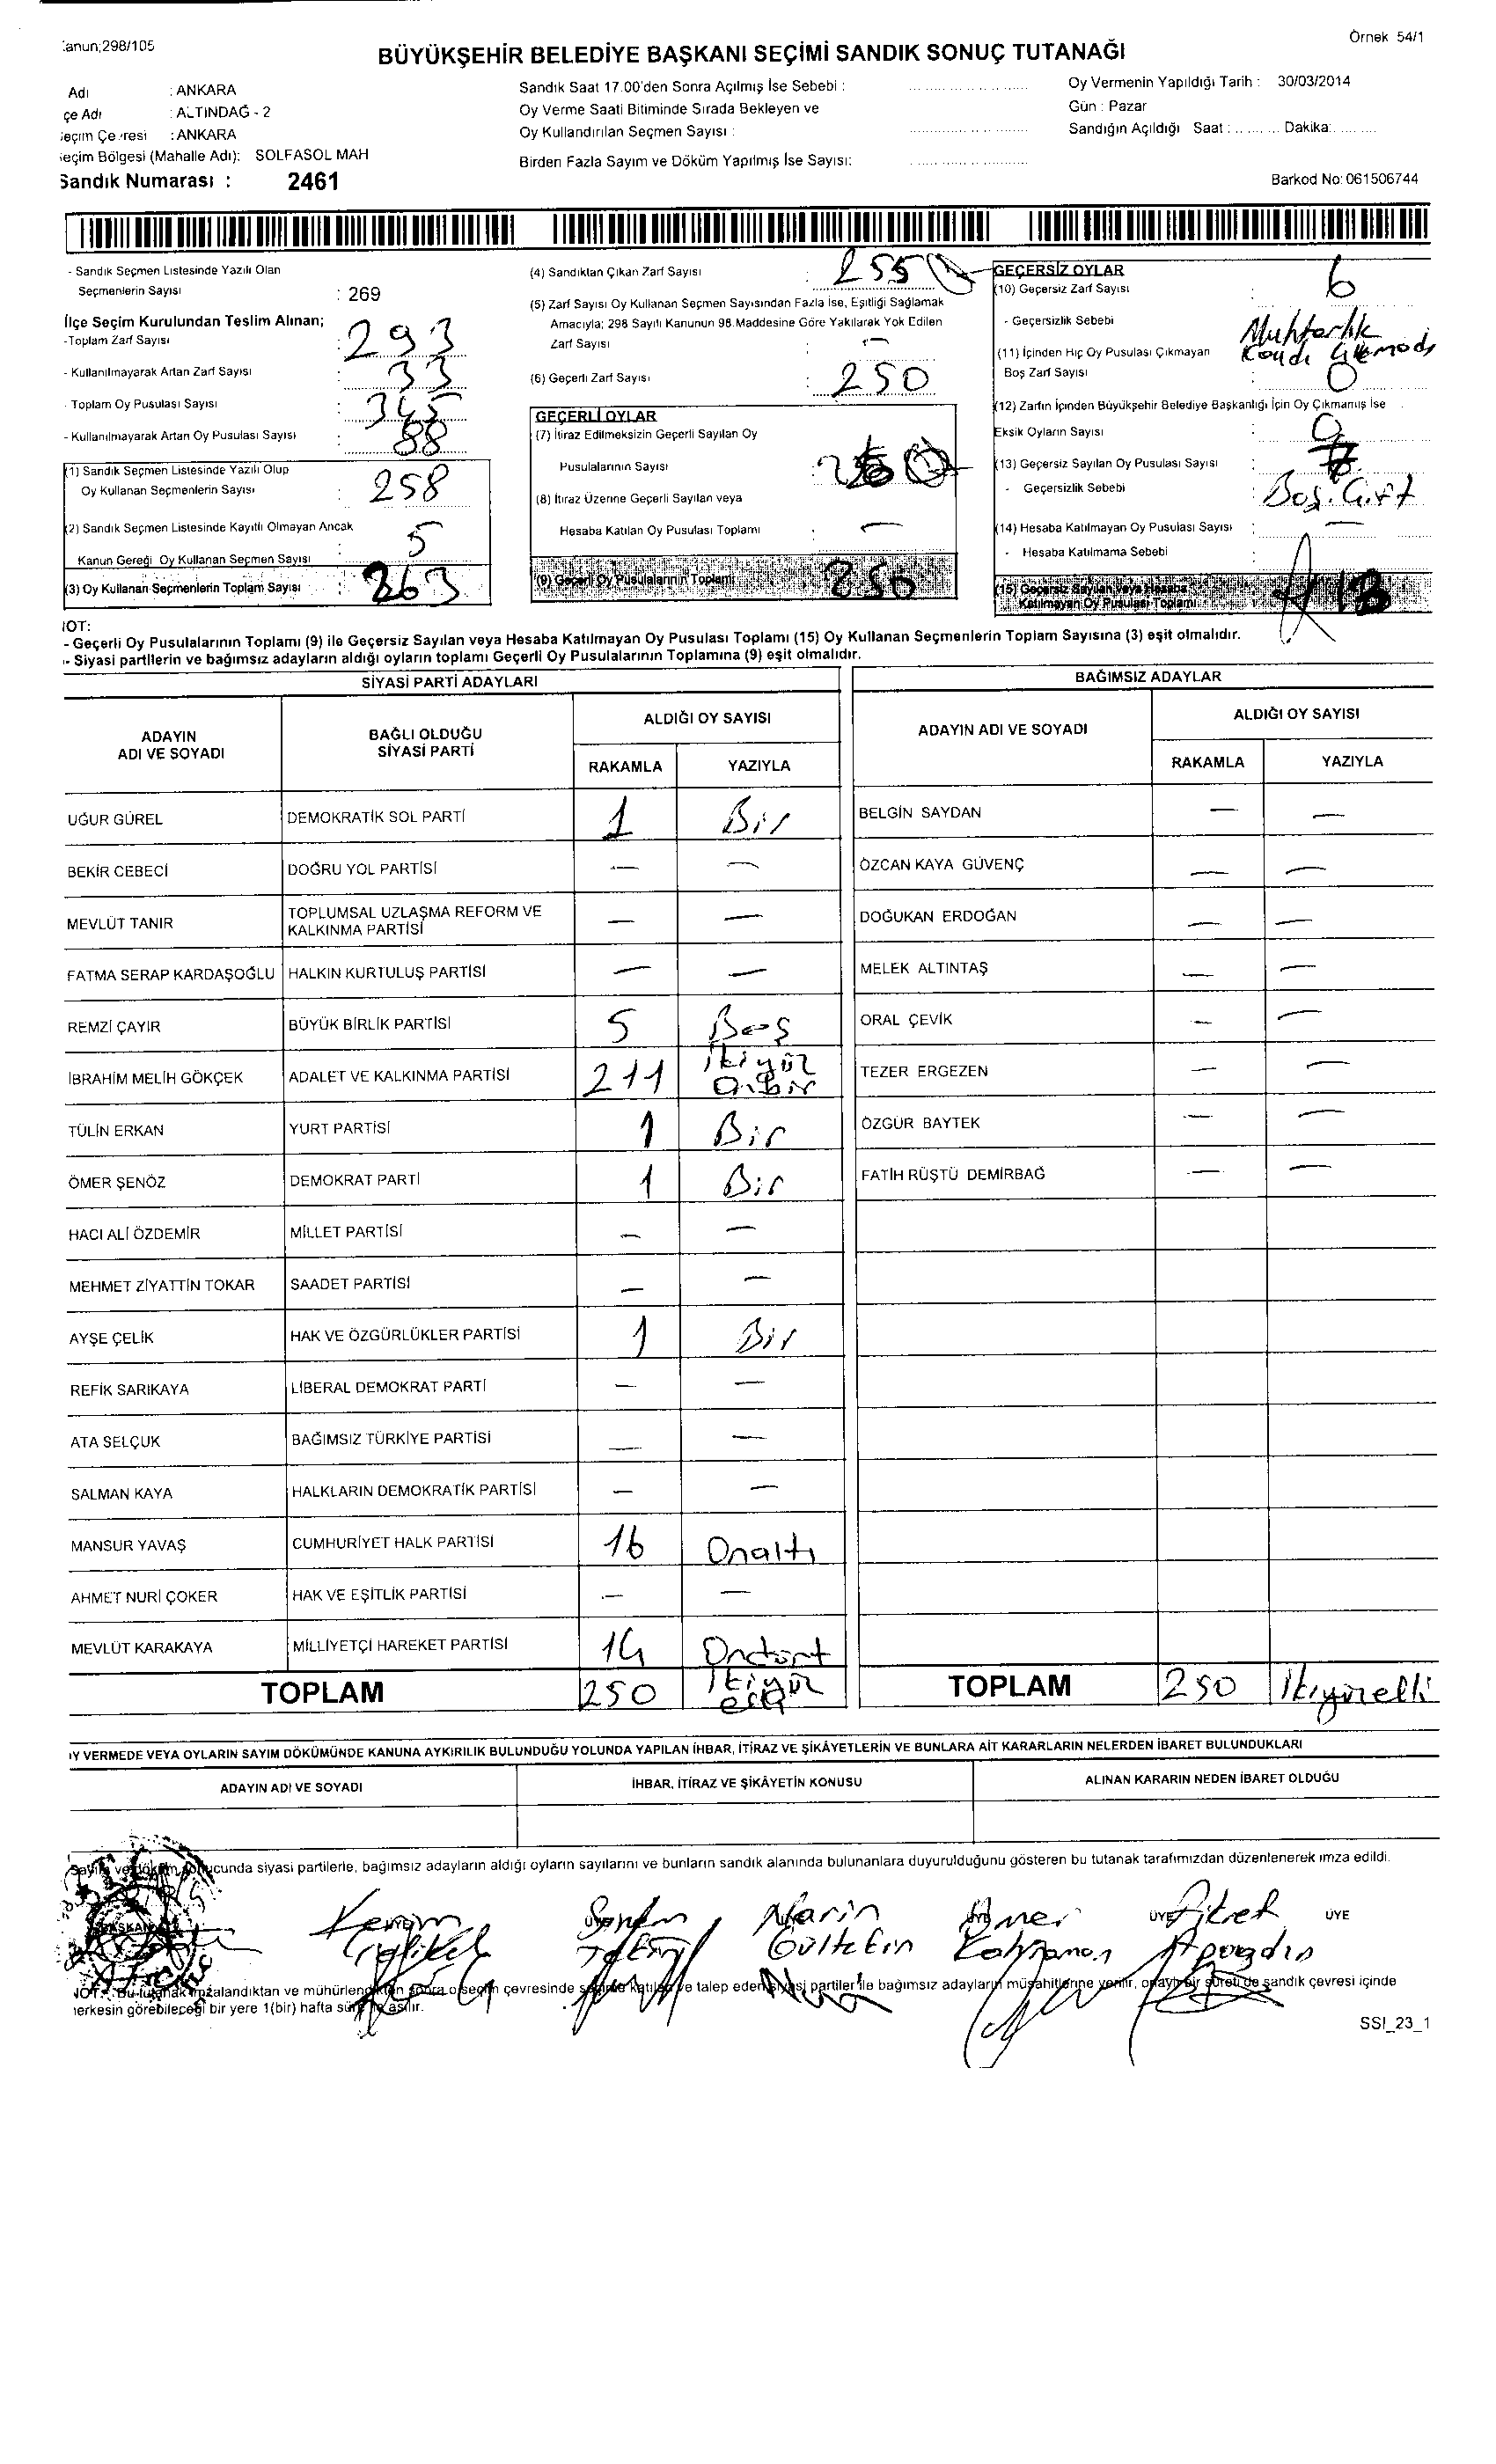 Kanun;298/105
Örnek 54/1
BÜYÜKŞEHİR BELEDİYE BAŞKANI SEÇİMİ SANDIK SONUÇ TUTANAĞI
Adı : ANKARA
çe Adı : ALTINDAĞ - 2
eçim Çevresi : ANKARA
eçim Bölgesi (Mahalle Adı): SOLFASOL MAH
Sandık Numarası : 2461
Sandık Saat 17.00'den Sonra Açılmış İse Sebebi :
Oy Verme Saati Bitiminde Sırada Bekleyen ve
Oy Kullandırılan Seçmen Sayısı :
Birden Fazla Sayım ve Döküm Yapılmış İse Sayısı:
Oy Vermenin Yapıldığı Tarih : 30/03/2014
Gün : Pazar
Sandığın Açıldığı Saat : ......... Dakika: .........
Barkod No: 061506744
- Sandık Seçmen Listesinde Yazılı Olan
Seçmenlerin Sayısı : 269
İlçe Seçim Kurulundan Teslim Alınan;
-Toplam Zarf Sayısı : 293
- Kullanılmayarak Artan Zarf Sayısı : 33
- Toplam Oy Pusulası Sayısı : 345
- Kullanılmayarak Artan Oy Pusulası Sayısı : 88
(1) Sandık Seçmen Listesinde Yazılı Olup
Oy Kullanan Seçmenlerin Sayısı : 258
(2) Sandık Seçmen Listesinde Kayıtlı Olmayan Ancak
Kanun Gereği Oy Kullanan Seçmen Sayısı : 5
(3) Oy Kullanan Seçmenlerin Toplam Sayısı : 263
(4) Sandıktan Çıkan Zarf Sayısı : 255
(5) Zarf Sayısı Oy Kullanan Seçmen Sayısından Fazla İse, Eşitliği Sağlamak
Amacıyla; 298 Sayılı Kanunun 98.Maddesine Göre Yakılarak Yok Edilen
Zarf Sayısı : —
(6) Geçerli Zarf Sayısı : 250
GEÇERLİ OYLAR
(7) İtiraz Edilmeksizin Geçerli Sayılan Oy
Pusulalarının Sayısı : 250
(8) İtiraz Üzerine Geçerli Sayılan veya
Hesaba Katılan Oy Pusulası Toplamı : —
(9) Geçerli Oy Pusulalarının Toplamı 250
GEÇERSİZ OYLAR
(10) Geçersiz Zarf Sayısı : 6
- Geçersizlik Sebebi Muhtarlık
(11) İçinden Hiç Oy Pusulası Çıkmayan
Boş Zarf Sayısı : 0
(12) Zarfın İçinden Büyükşehir Belediye Başkanlığı İçin Oy Çıkmamış İse
Eksik Oyların Sayısı :
(13) Geçersiz Sayılan Oy Pusulası Sayısı :
- Geçersizlik Sebebi : Boş. Çift
(14) Hesaba Katılmayan Oy Pusulası Sayısı : —
- Hesaba Katılmama Sebebi :
(15) Geçersiz Sayılan veya Hesaba
Katılmayan Oy Pusulası Toplamı 13
NOT:
- Geçerli Oy Pusulalarının Toplamı (9) ile Geçersiz Sayılan veya Hesaba Katılmayan Oy Pusulası Toplamı (15) Oy Kullanan Seçmenlerin Toplam Sayısına (3) eşit olmalıdır.
- Siyasi partilerin ve bağımsız adayların aldığı oyların toplamı Geçerli Oy Pusulalarının Toplamına (9) eşit olmalıdır.
SİYASİ PARTİ ADAYLARI
ADAYIN ADI VE SOYADI
BAĞLI OLDUĞU SİYASİ PARTİ
ALDIĞI OY SAYISI
RAKAMLA YAZIYLA
UĞUR GÜREL DEMOKRATİK SOL PARTİ 1 Bir
BEKİR CEBECİ DOĞRU YOL PARTİSİ — —
MEVLÜT TANIR TOPLUMSAL UZLAŞMA REFORM VE KALKINMA PARTİSİ — —
FATMA SERAP KARDAŞOĞLU HALKIN KURTULUŞ PARTİSİ — —
REMZİ ÇAYIR BÜYÜK BİRLİK PARTİSİ 5 Beş
İBRAHİM MELİH GÖKÇEK ADALET VE KALKINMA PARTİSİ 211 İkiyüz Onbir
TÜLİN ERKAN YURT PARTİSİ 1 Bir
ÖMER ŞENÖZ DEMOKRAT PARTİ 1 Bir
HACI ALİ ÖZDEMİR MİLLET PARTİSİ — —
MEHMET ZİYATTİN TOKAR SAADET PARTİSİ — —
AYŞE ÇELİK HAK VE ÖZGÜRLÜKLER PARTİSİ 1 Bir
REFİK SARIKAYA LİBERAL DEMOKRAT PARTİ — —
ATA SELÇUK BAĞIMSIZ TÜRKİYE PARTİSİ — —
SALMAN KAYA HALKLARIN DEMOKRATİK PARTİSİ — —
MANSUR YAVAŞ CUMHURİYET HALK PARTİSİ 16 Onaltı
AHMET NURİ ÇOKER HAK VE EŞİTLİK PARTİSİ — —
MEVLÜT KARAKAYA MİLLİYETÇİ HAREKET PARTİSİ 14 Ondört
TOPLAM 250 İkiyüz elli
BAĞIMSIZ ADAYLAR
ADAYIN ADI VE SOYADI
ALDIĞI OY SAYISI
RAKAMLA YAZIYLA
BELGİN SAYDAN — —
ÖZCAN KAYA GÜVENÇ — —
DOĞUKAN ERDOĞAN — —
MELEK ALTINTAŞ — —
ORAL ÇEVİK — —
TEZER ERGEZEN — —
ÖZGÜR BAYTEK — —
FATİH RÜŞTÜ DEMİRBAĞ — —
TOPLAM 250 İkiyüzelli
OY VERMEDE VEYA OYLARIN SAYIM DÖKÜMÜNDE KANUNA AYKIRILIK BULUNDUĞU YOLUNDA YAPILAN İHBAR, İTİRAZ VE ŞİKÂYETLERİN VE BUNLARA AİT KARARLARIN NELERDEN İBARET BULUNDUKLARI
ADAYIN ADI VE SOYADI
İHBAR, İTİRAZ VE ŞİKÂYETİN KONUSU
ALINAN KARARIN NEDEN İBARET OLDUĞU
Sayım ve döküm sonucunda siyasi partilerle, bağımsız adayların aldığı oyların sayılarını ve bunların sandık alanında bulunanlara duyurulduğunu gösteren bu tutanak tarafımızdan düzenlenerek imza edildi.
BAŞKAN Kerem Narin Gültekin Ömer Kahraman ÜYE Fikret ÜYE
NOT : Bu tutanak imzalandıktan ve mühürlendikten sonra o seçim çevresinde seçime katılan ve talep eden siyasi partiler ile bağımsız adayların müşahitlerine verilir, onaylı bir sureti de sandık çevresi içinde
herkesin görebileceği bir yere 1(bir) hafta süre ile asılır.
SSI_23_1